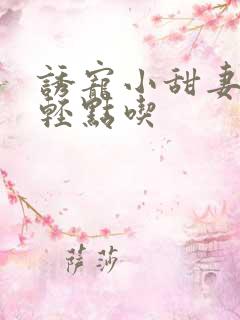 誘寵小甜妻
輕點喫
薩莎